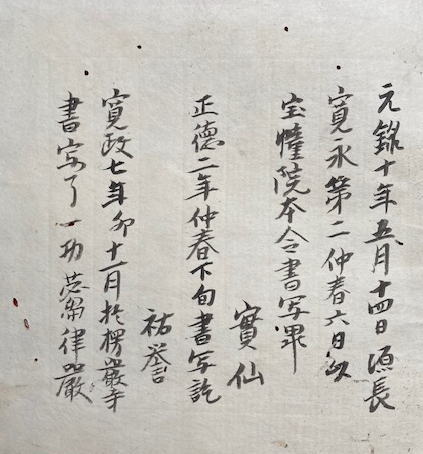 元録十年五月十四日源長
寛永第二仲春六日以
宝幢院本令書写畢
實仙
正徳二年仲春下旬書写訖
祐誉
寛政七年卯十一月於楞嚴寺
書写了 一功苾蒭律嚴